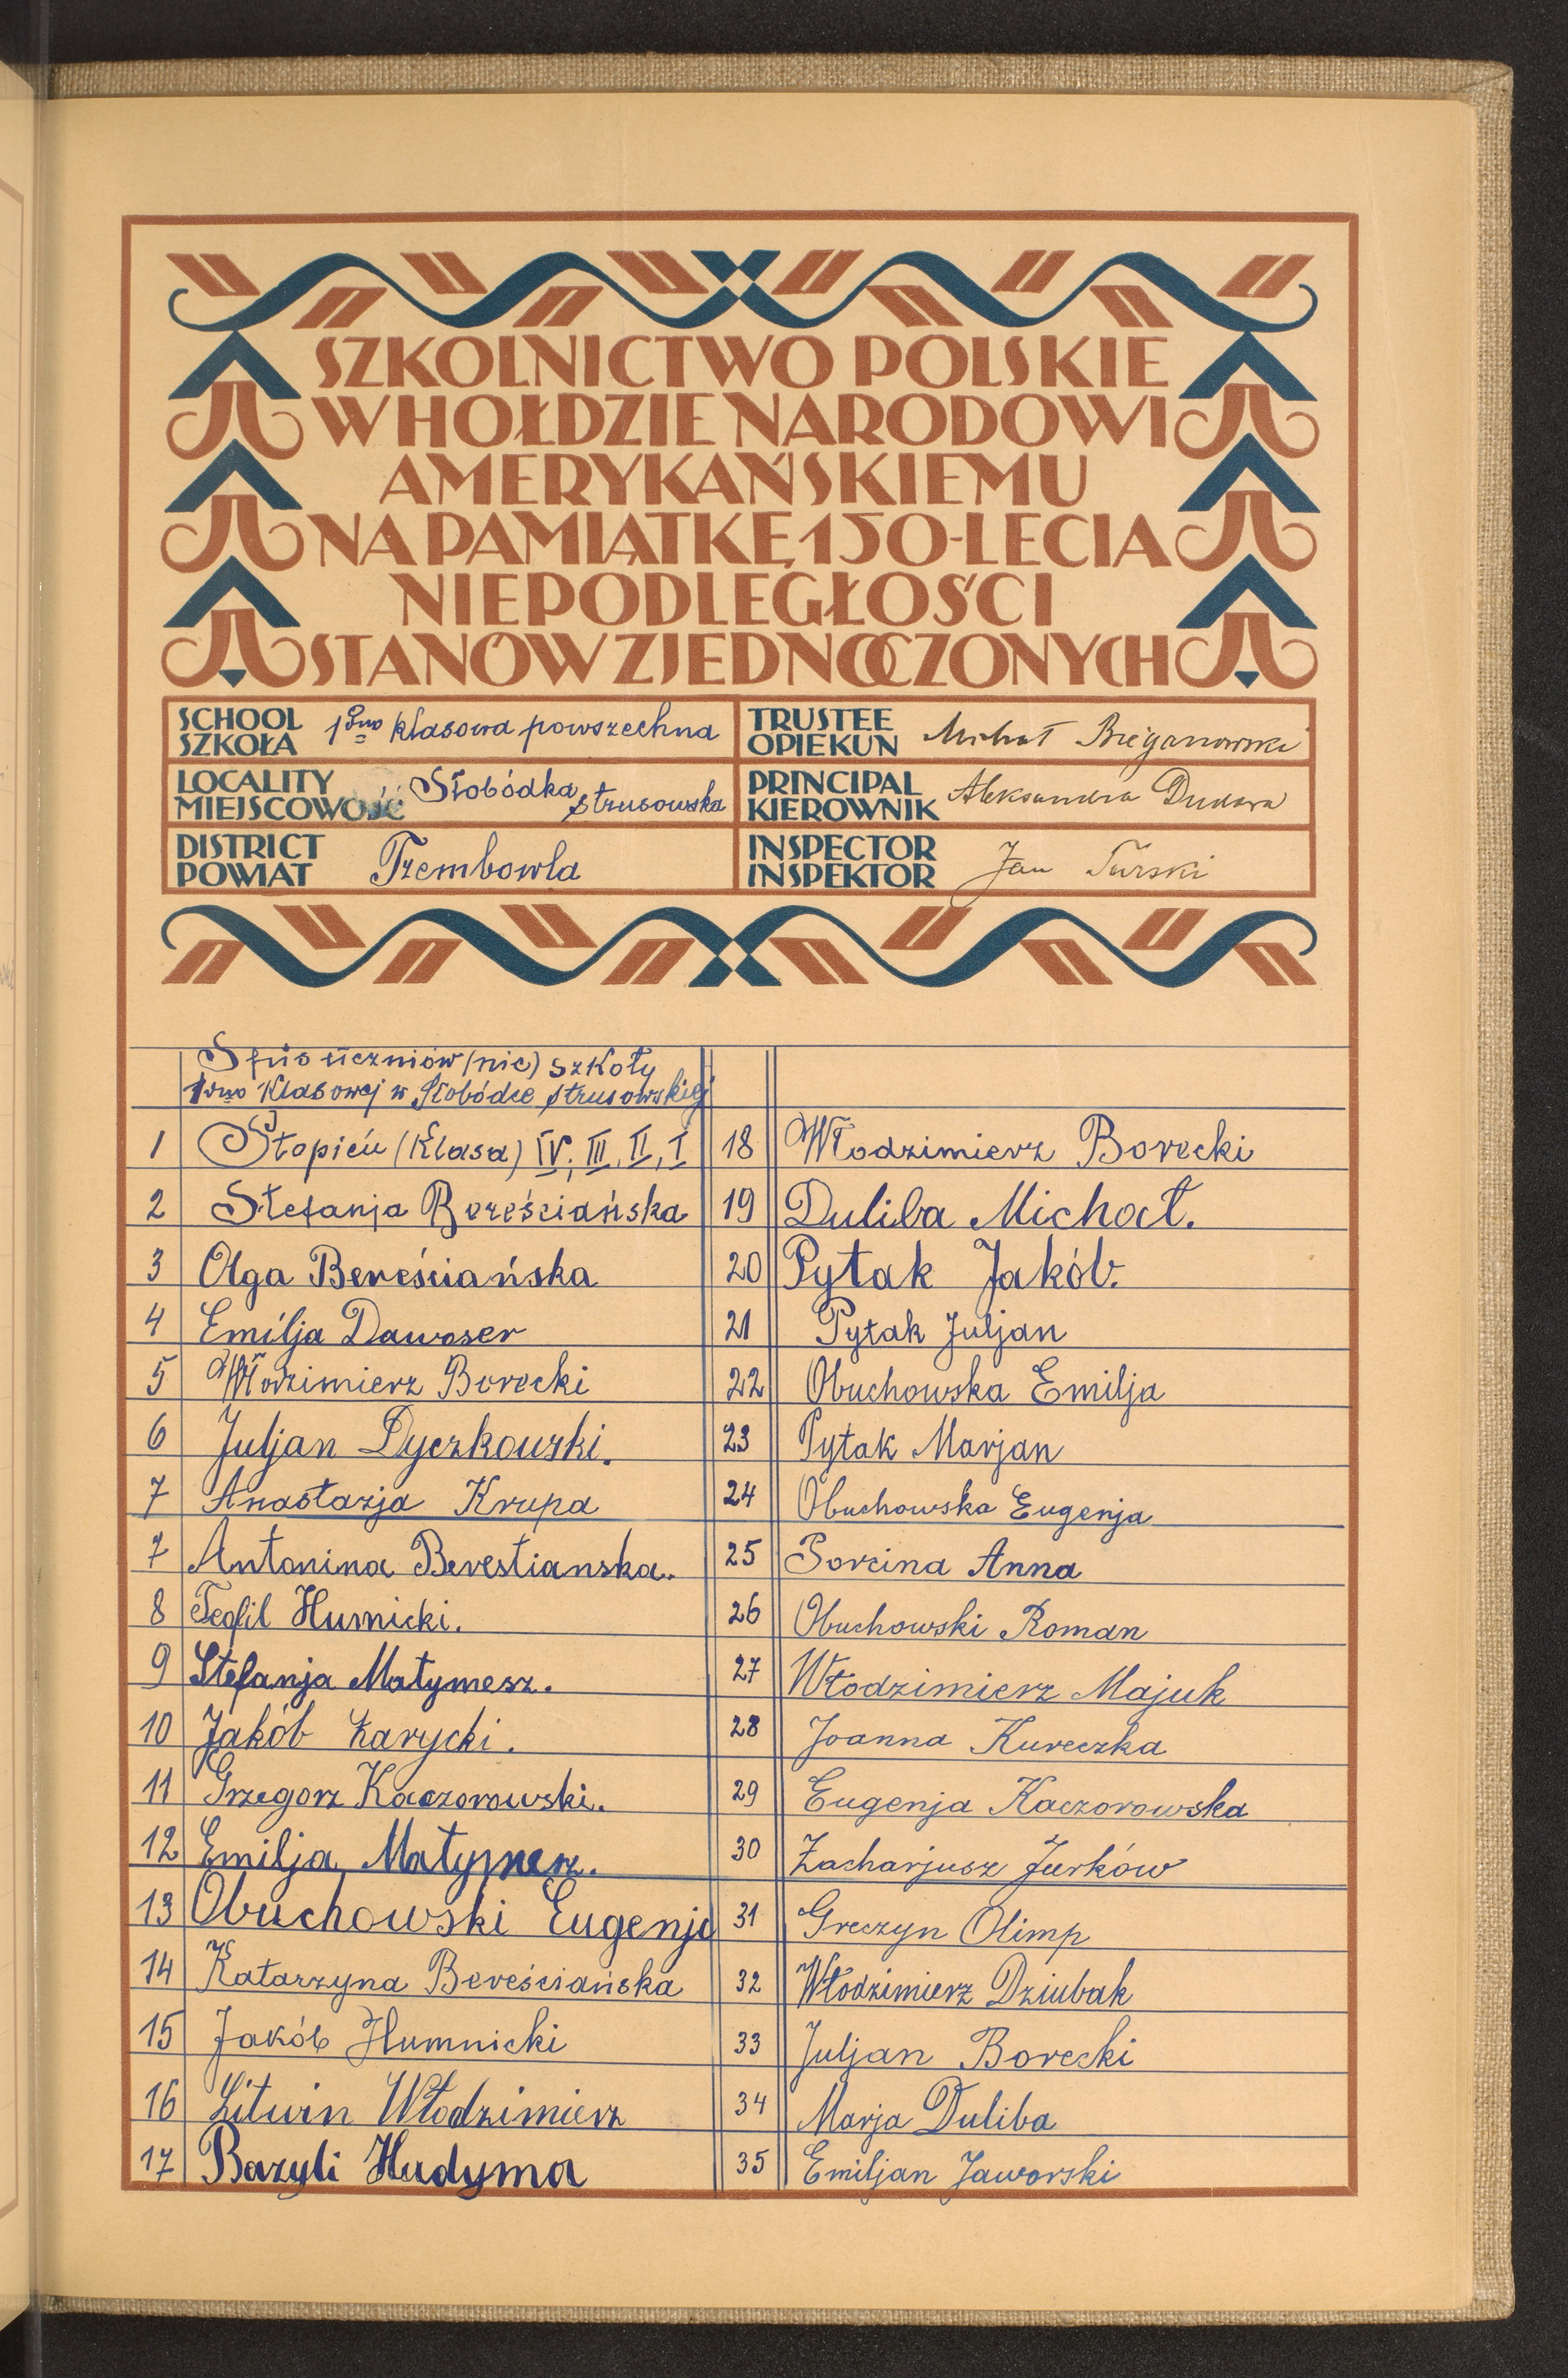 SZKOLNICTWO POLSKIE
W HOŁDZIE NARODOWI
AMERYKAŃSKIEMU
NA PAMIĄTKĘ 150-LECIA
NIEPODLEGŁOŚCI
STANÓW ZJEDNOCZONYCH
SCHOOL
SZKOŁA 1dno klasowa powszechna
TRUSTEE
OPIEKUN Michał Bieganowski
LOCALITY
MIEJSCOWOŚĆ Słobódka strusowska
PRINCIPAL
KIEROWNIK Aleksandra Dudowa
DISTRICT
POWIAT Trembowla
INSPECTOR
INSPEKTOR Jan Turski
Spis uczniów (nic) szkoły
1dno klasowej w Słobódce strusowskiej
1 Stopień (klasa) IV, III, II, I
2 Stefanja Bereściańska
3 Olga Bereściańska
4 Emilja Dawoser
5 Włodzimierz Borecki
6 Juljan Dyczkowski.
7 Anastazja Krupa
7 Antonina Berestianska.
8 Teofil Humicki.
9 Stefanja Matymesz.
10 Jakób Łarycki.
11 Grzegorz Kaczorowski.
12 Emilja Matymesz.
13 Obuchowski Eugenju
14 Katarzyna Bereściańska
15 Jakób Humnicki
16 Litwin Włodzimierz
17 Bazyli Hudyma
18 Włodzimierz Borecki
19 Duliba Michał.
20 Pytak Jakób.
21 Pytak Juljan
22 Obuchowska Emilja
23 Pytak Marjan
24 Obuchowska Eugenja
25 Porcina Anna
26 Obuchowski Roman
27 Włodzimierz Majuk
28 Joanna Kureczka
29 Eugenja Kaczorowska
30 Zacharjusz Jurków
31 Greczyn Olimp
32 Włodzimierz Dziubak
33 Juljan Borecki
34 Marja Duliba
35 Emiljan Jaworski